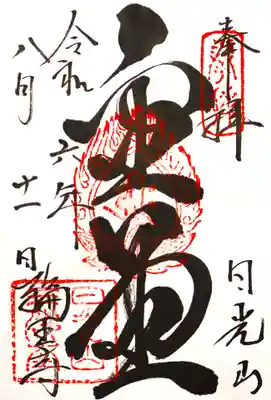 奉拝
日光山
金堂
令和六年
八月十一日
輪王寺